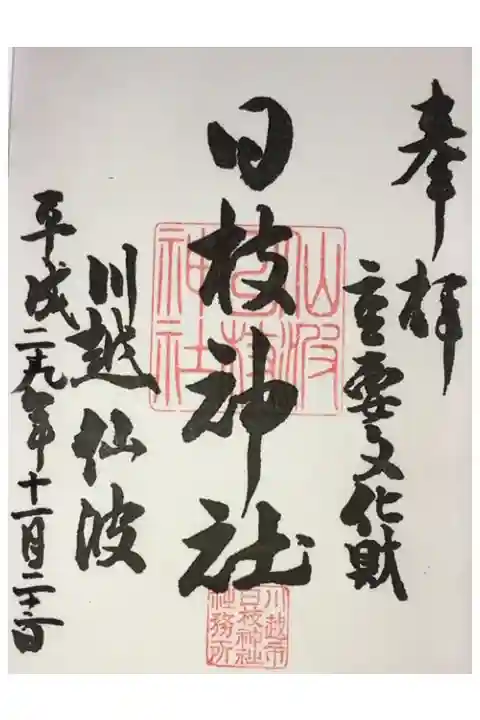 奉拝
重要文化財
日枝神社
仙波
日枝
神社
川越市
日枝神社
社務所
川越仙波
平成二十九年十一月二十三日